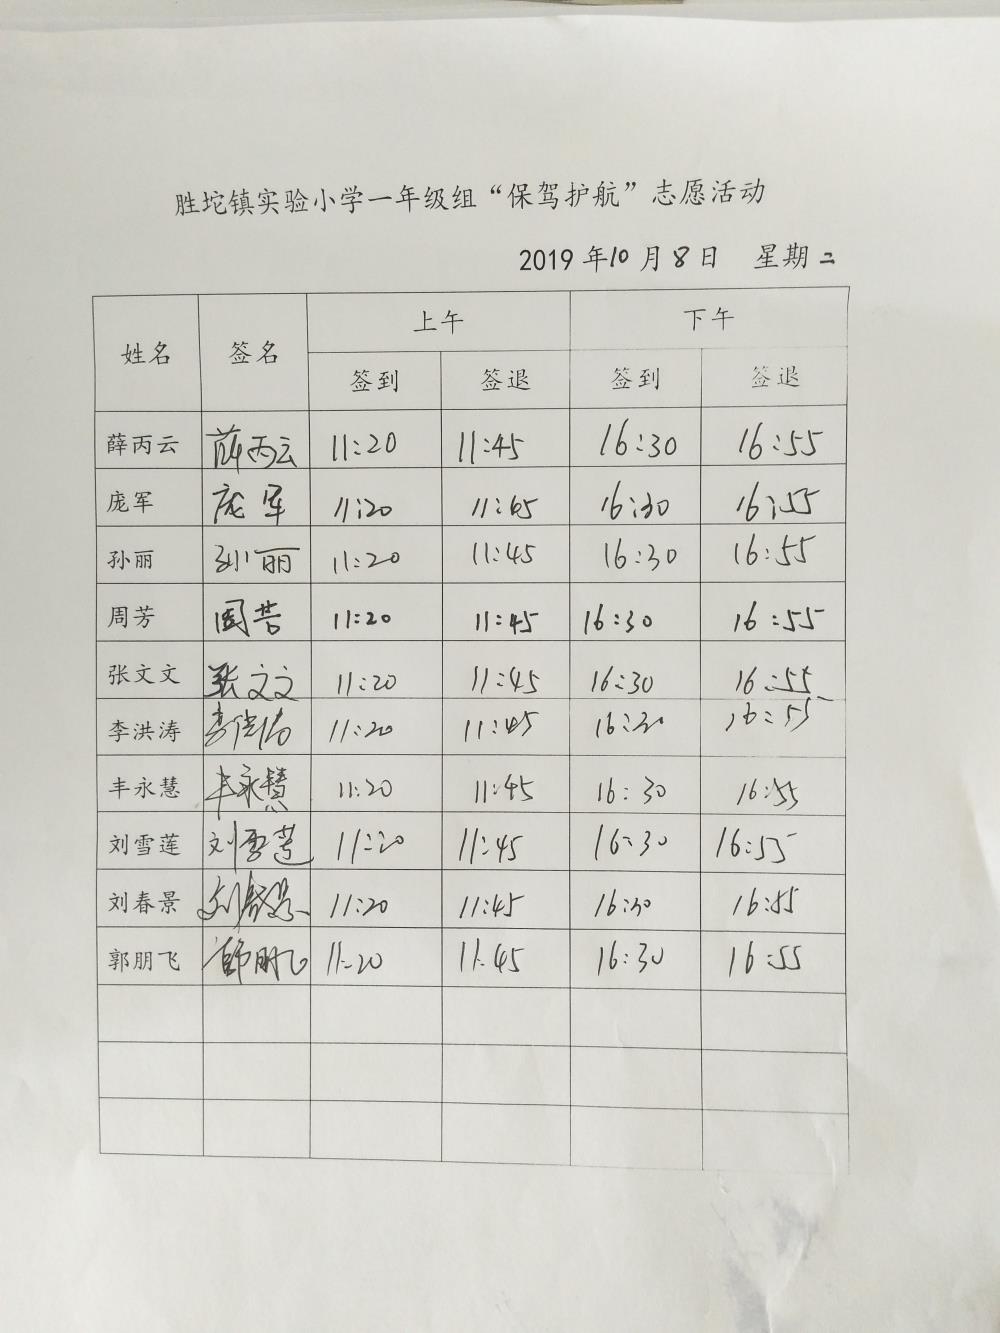 胜坨镇实验小学一年级组“保驾护航”志愿活动
2019年10月8日 星期二
姓名 签名 上午 下午
签到 签退 签到 签退
薛丙云 薛丙云 11:20 11:45 16:30 16:55
庞军 庞军 11:20 11:45 16:30 16:55
孙丽 孙丽 11:20 11:45 16:30 16:55
周芳 周芳 11:20 11:45 16:30 16:55
张文文 张文文 11:20 11:45 16:30 16:55
李洪涛 李洪涛 11:20 11:45 16:30 16:55
丰永慧 丰永慧 11:20 11:45 16:30 16:55
刘雪莲 刘雪莲 11:20 11:45 16:30 16:55
刘春景 刘春景 11:20 11:45 16:30 16:55
郭朋飞 郭朋飞 11:20 11:45 16:30 16:55